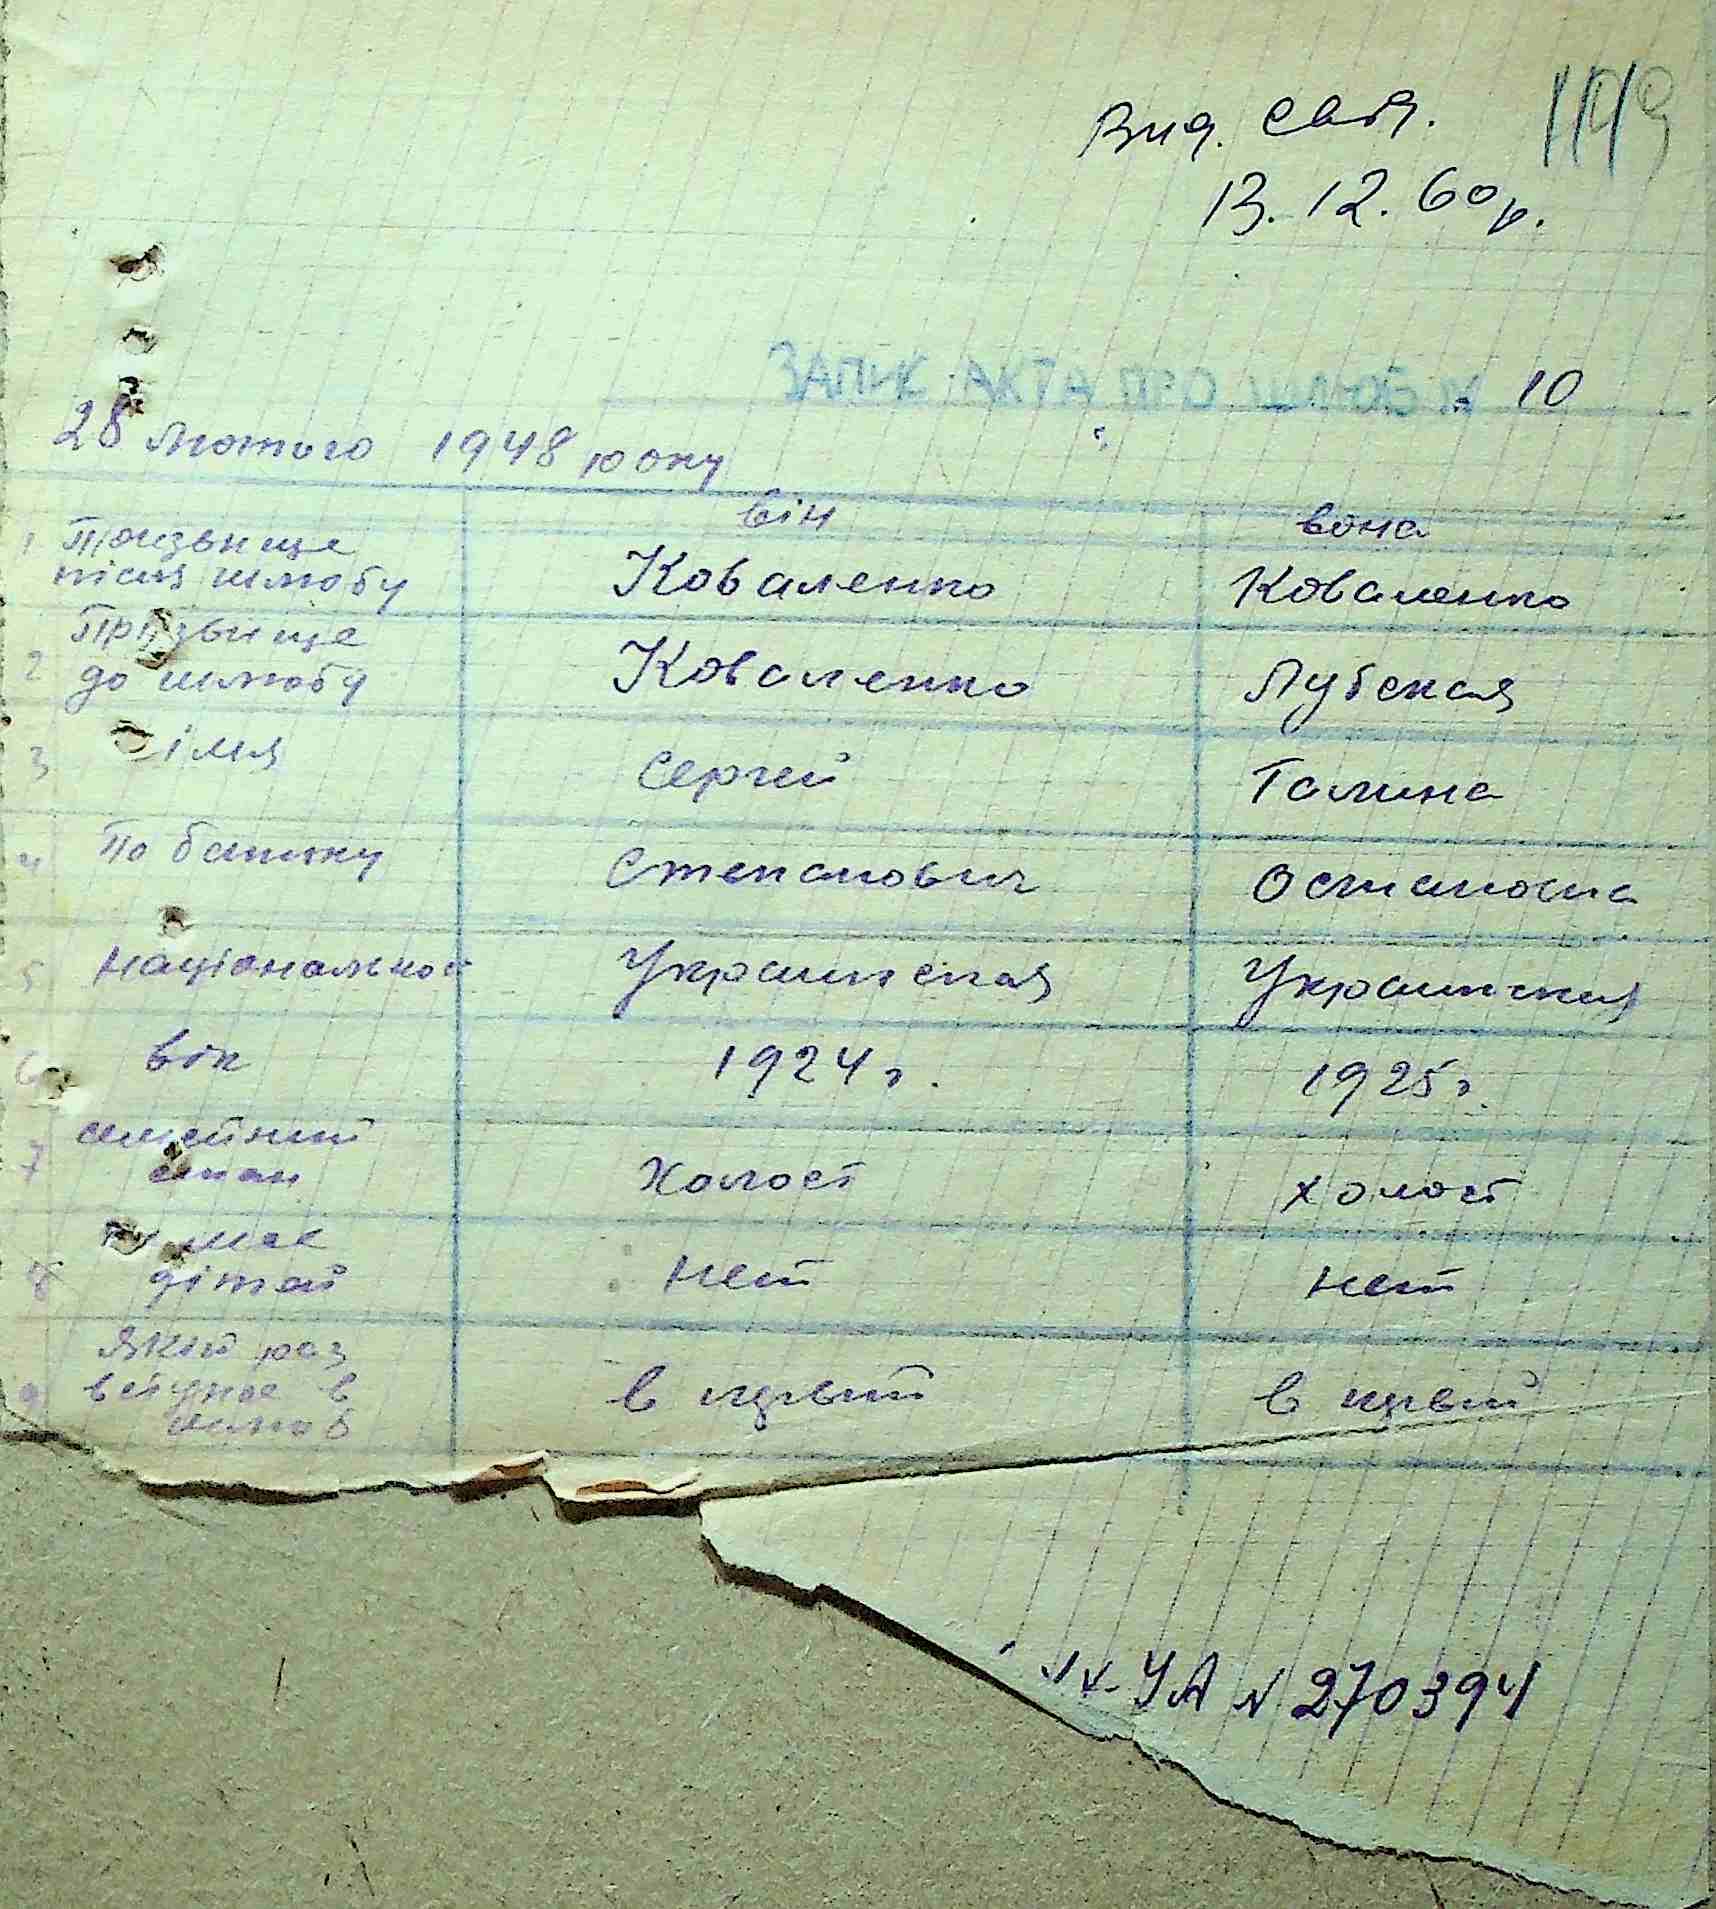 Вид. свід.
13. 12. 60 р.
ЗАПИС АКТА ПРО ШЛЮБ № 10
28 лютого 1948 року
він вона
1 Прізвище після шлюбу Коваленко Коваленко
2 Прізвище до шлюбу Коваленко Лубская
3 імя Сергей Галина
4 По батьку Степанович
5 Національност Украинская Украинская
6 вік 1924 г. 1925 г.
7 семейний стан Холост холост
8 чи має дітей нет нет
9 Який раз вступає в шлюб в первый в первый
УА № 270394